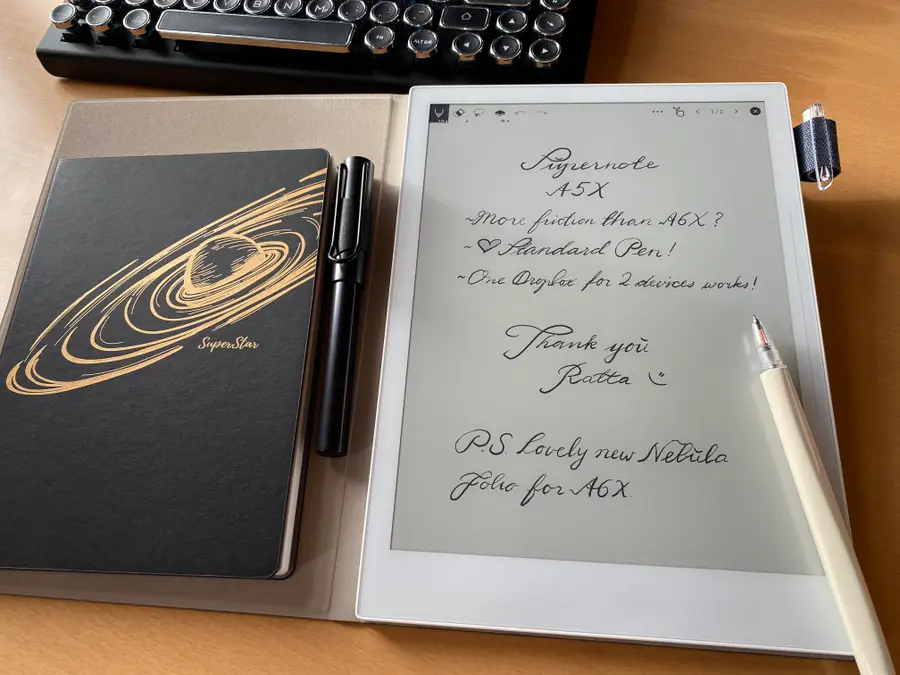 B N M
FN ALT GR
SuperStar
1/2
Supernote
A5X
~More friction than A6X?
~♡ Standard Pen!
~One Dropbox for 2 devices works!
Thank you
Ratta
P.S. Lovely new Nebula
Folio for A6X